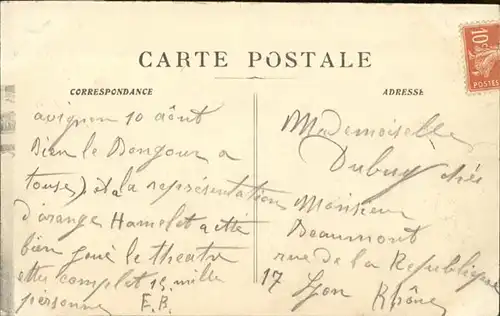 CARTE POSTALE
CORRESPONDANCE
avignon 10 août
Bien le Bongour a
touse) et la représentation
d'orange Hamelet a été
bien goué le theatre
etter complet 15 mille
personne
E.B.
ADRESSE
Mademoiselle
Dubuy chés
Monsieur
Beaumont
rue de la Republique
17 Lyon Rhône
10c